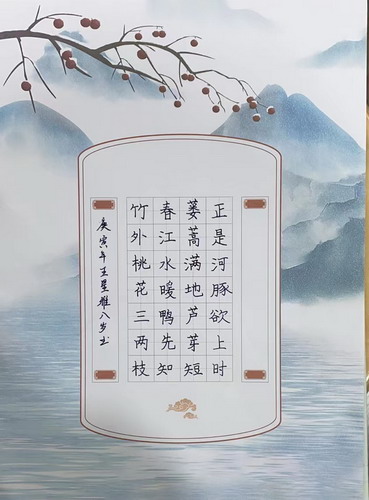 竹外桃花三两枝
春江水暖鸭先知
蒌蒿满地芦芽短
正是河豚欲上时
庚寅年王星雅八岁书